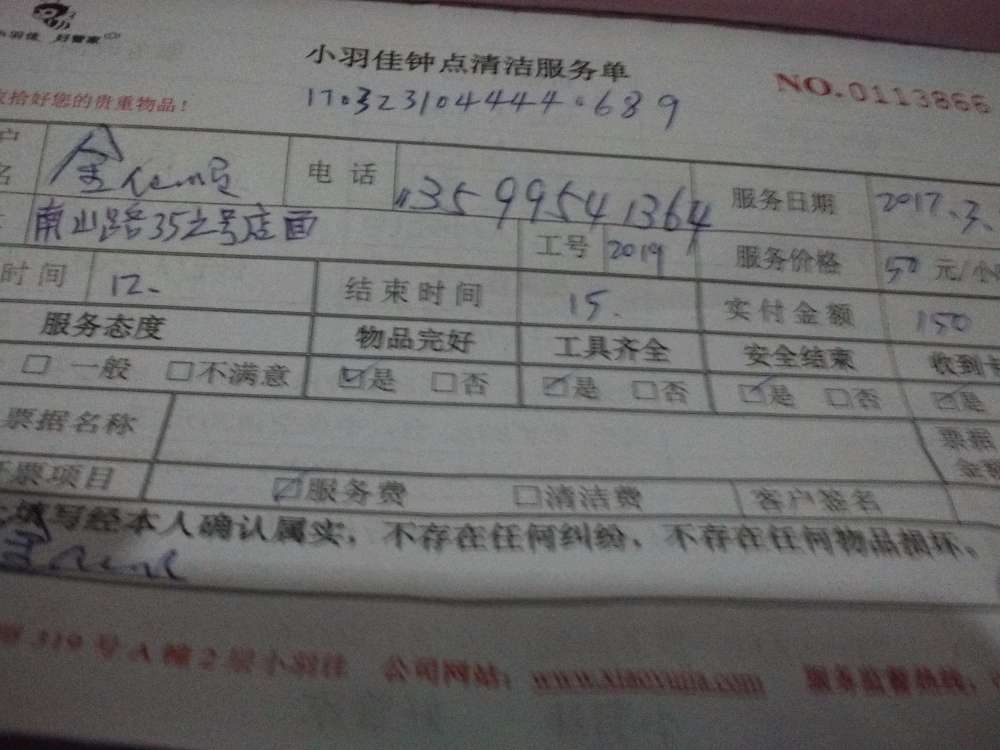 小羽佳 好管家
小羽佳钟点清洁服务单 NO.0113866
收拾好您的贵重物品!
17032310444.689
户名 金 电话 13599541364 服务日期 2017.3.
南山路352号店面 工号 2019 服务价格 50元/小
时间 12. 结束时间 15. 实付金额 150
服务态度 物品完好 工具齐全 安全结束 收到
□ 一般 □不满意 ☑是 □否 ☑是 □否 ☑是 □否 ☑是
票据名称 票据金额
开票项目 ☑服务费 □清洁费 客户签名
填写经本人确认属实,不存在任何纠纷,不存在任何物品损坏。
319号A幢2层小羽佳 公司网站:www.xiaoyujia.com 服务监督热线: